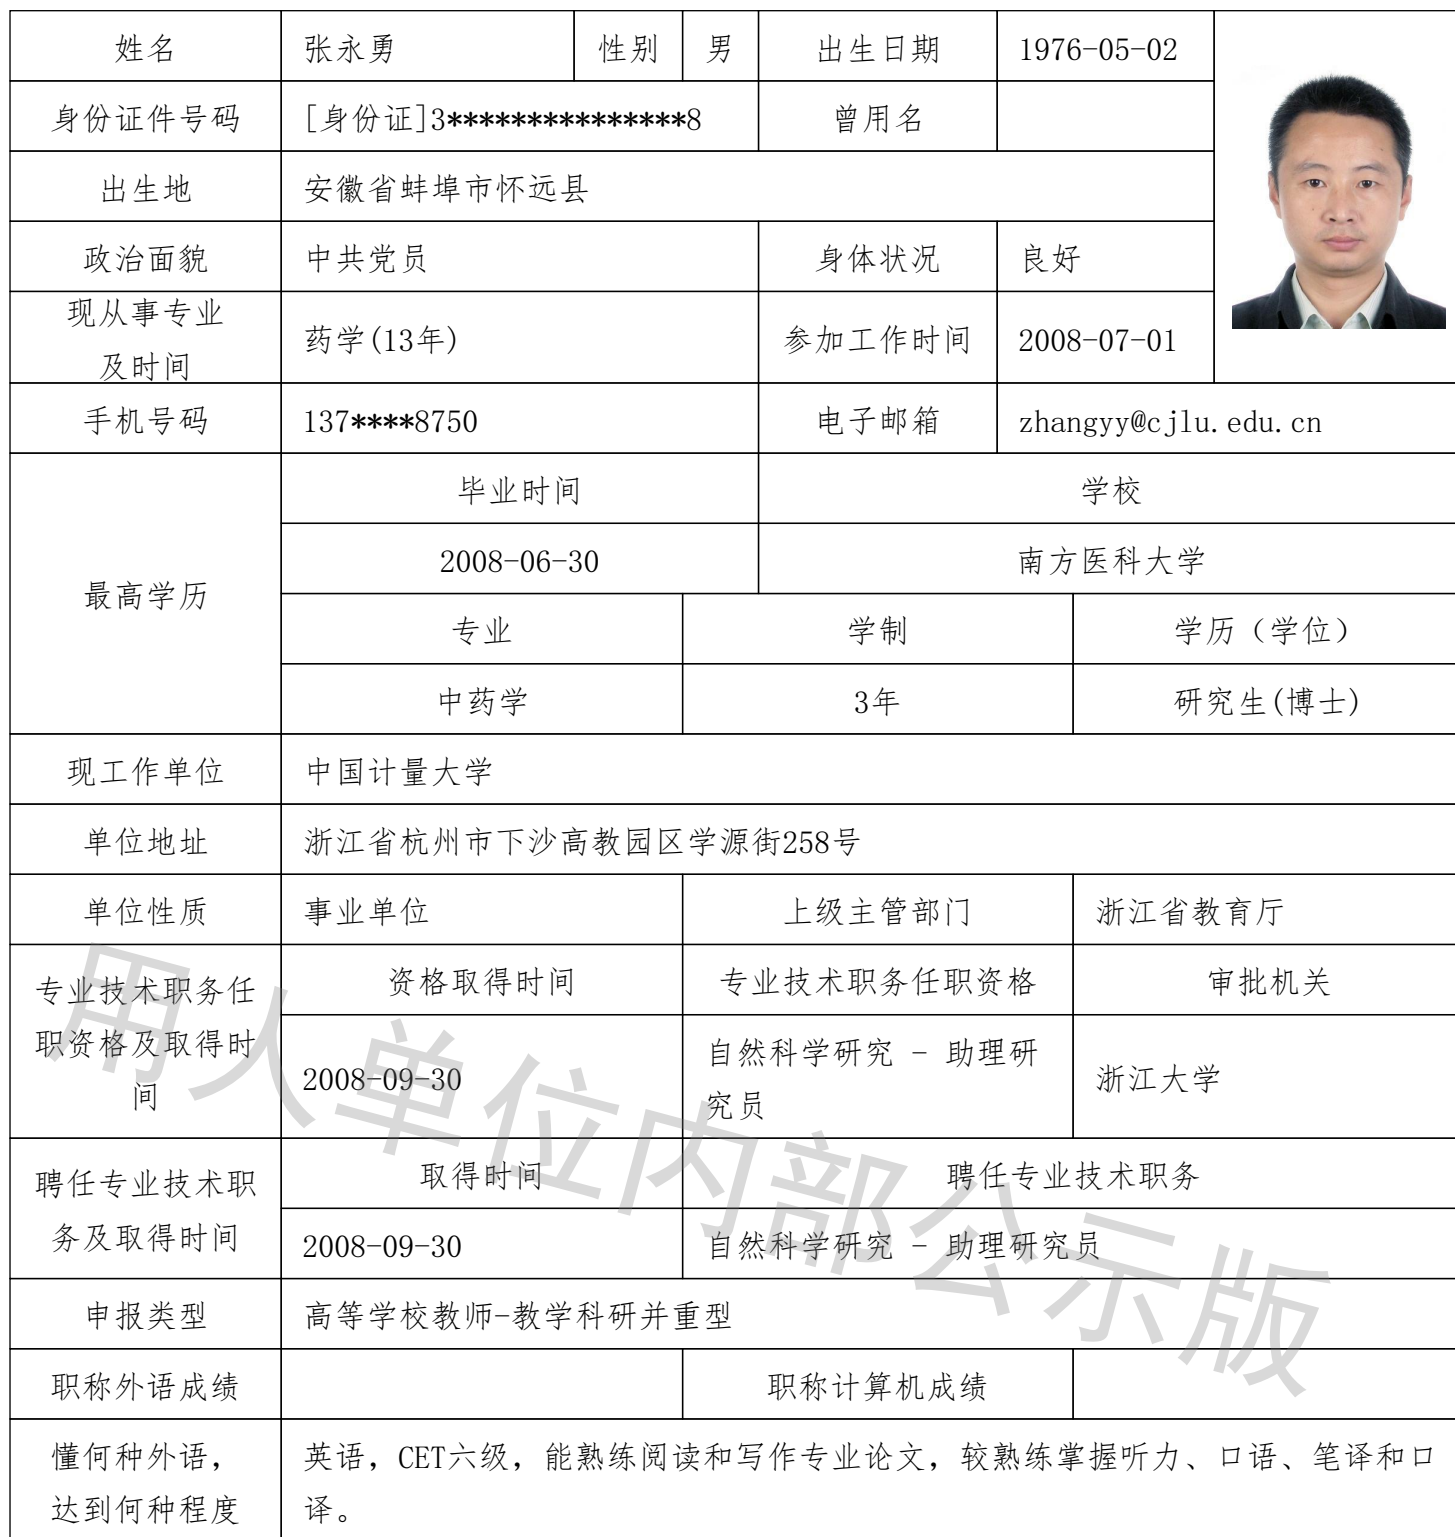 姓名 张永勇 性别 男 出生日期 1976-05-02
身份证件号码 [身份证]3***************8 曾用名
出生地 安徽省蚌埠市怀远县
政治面貌 中共党员 身体状况 良好
现从事专业
及时间
药学(13年) 参加工作时间 2008-07-01
手机号码 137****8750 电子邮箱 zhangyy@cjlu.edu.cn
最高学历
毕业时间 学校
2008-06-30 南方医科大学
专业 学制 学历（学位）
中药学 3年 研究生(博士)
现工作单位 中国计量大学
单位地址 浙江省杭州市下沙高教园区学源街258号
单位性质 事业单位 上级主管部门 浙江省教育厅
专业技术职务任
职资格及取得时
间
资格取得时间 专业技术职务任职资格 审批机关
2008-09-30
自然科学研究 - 助理研
究员
浙江大学
聘任专业技术职
务及取得时间
取得时间 聘任专业技术职务
2008-09-30 自然科学研究 - 助理研究员
申报类型 高等学校教师-教学科研并重型
职称外语成绩 职称计算机成绩
懂何种外语，
达到何种程度
英语，CET六级，能熟练阅读和写作专业论文，较熟练掌握听力、口语、笔译和口
译。
用人单位内部公示版